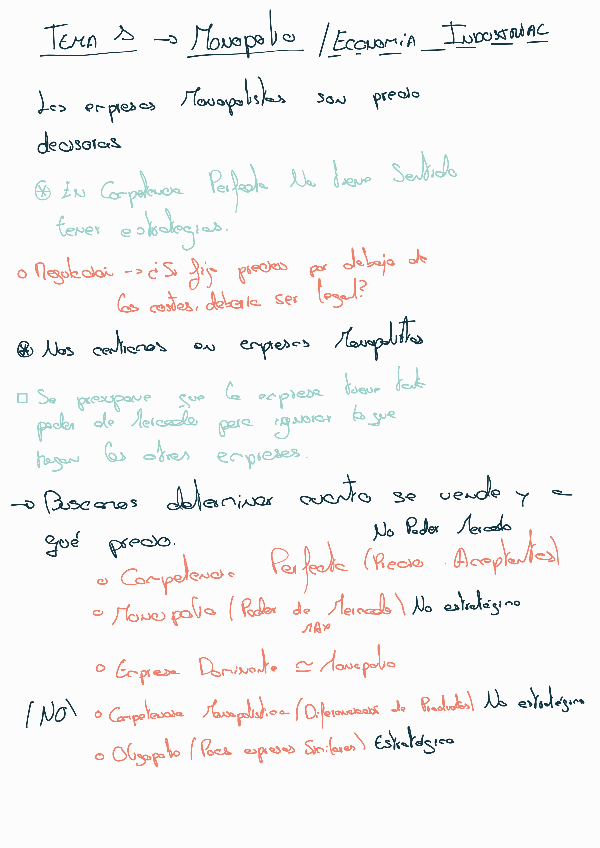 TEMA 5 → Monopolio / ECONOMIA INDUSTRIAL
Las empresas Monopolistas son precio
decisoras
⊛ EN Competencia Perfecta No tiene Sentido
tener estrategias.
o → ¿Si fijo precios por debajo de
los costes, debería ser legal?
⊛ Nos centramos en empresas Monopolistas
□ Se presupone que la empresa tiene tanto
poder de Mercado para ignorar lo que
hagan las otras empresas.
→ Buscamos determinar cuanto se vende y a
qué precio.
No Poder Mercado
o Competencia Perfecta (Precio Aceptantes)
o Monopolio (Poder de Mercado) No estratégico
MAX
o Empresa Dominante ≃ Monopolio
(NO) o Competencia Monopolística (Diferenciación de Productos) No estratégico
o Oligopolio (Pocas empresas Similares) Estratégico